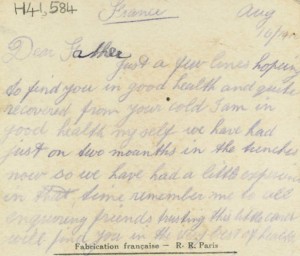 H41,584
France Aug
16/
Dear Father
Just a few lines hoping
to find you in good health and quite
recovered from your cold I am in
good health my self we have had
just on two moanths in the trenches
now so we have had a little experien
in that time remember me to all
enquiring friends trusting this little card
will find you in the very best of health
Fabrication française — R. R. Paris